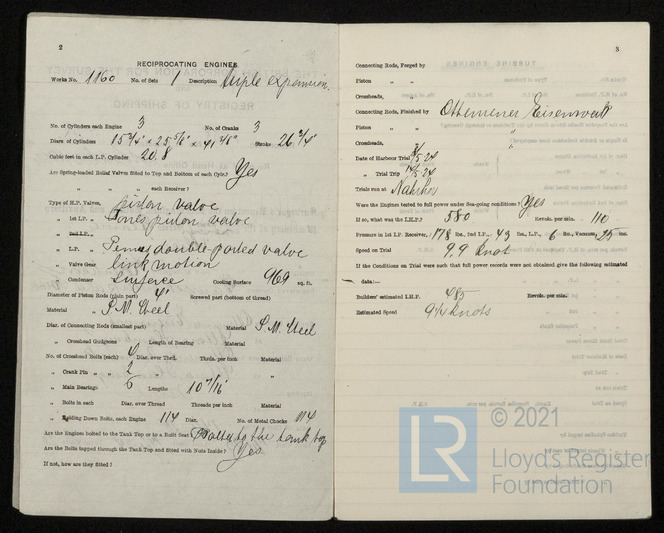 2
RECIPROCATING ENGINES.
Works No. 1160 No. of Sets 1 Description triple expansion.
No. of Cylinders each Engine 3 No. of Cranks 3
Diars. of Cylinders 15 3/4" × 25 5/8" × 41 3/8" Stroke 26 3/4"
Cubic feet in each L.P. Cylinder 20.8
Are Spring-loaded Relief Valves fitted to Top and Bottom of each Cylr.? Yes
„ „ „ each Receiver?
Type of H.P. Valves, piston valve
„ 1st I.P. „ piston valve
„ 2nd I.P. „
„ L.P. „ double-ported valve
„ Valve Gear link motion
„ Condenser Surface Cooling Surface 969 sq. ft.
Diameter of Piston Rods (plain part) 4" Screwed part (bottom of thread)
Material S.M. Steel
Diar. of Connecting Rods (smallest part) Material S.M. Steel
„ Crosshead Gudgeons Length of Bearing Material
No. of Crosshead Bolts (each) Diar. over Thrd. Thrds. per inch Material
„ Crank Pin „ „ 2 „ „ „
„ Main Bearings 6 Lengths 10 7/16"
„ Bolts in each Diar. over Thread Threads per inch Material
„ Holding Down Bolts, each Engine 114 Diar. No. of Metal Chocks 114
Are the Engines bolted to the Tank Top or to a Built Seat? Bolted to the tank top
Are the Bolts tapped through the Tank Top and fitted with Nuts Inside? Yes
If not, how are they fitted?
3
Connecting Rods, Forged by
Piston „ „
Crossheads, „
Connecting Rods, Finished by
Piston „ „
Crossheads, „
Date of Harbour Trial
„ Trial Trip
Trials run at
Were the Engines tested to full power under Sea-going conditions? Yes
If so, what was the I.H.P.? 580 Revols. per min. 110
Pressure in 1st I.P. Receiver, 178 lbs., 2nd I.P., 43 lbs., L.P., 6 lbs., Vacuum, 25 ins.
Speed on Trial 9,9 knot
If the Conditions on Trial were such that full power records were not obtained give the following estimated
data:—
Builders' estimated I.H.P. 485 Revols. per min.
Estimated Speed 9 1/4 knots
LR
© 2021
Lloyd's Register
Foundation